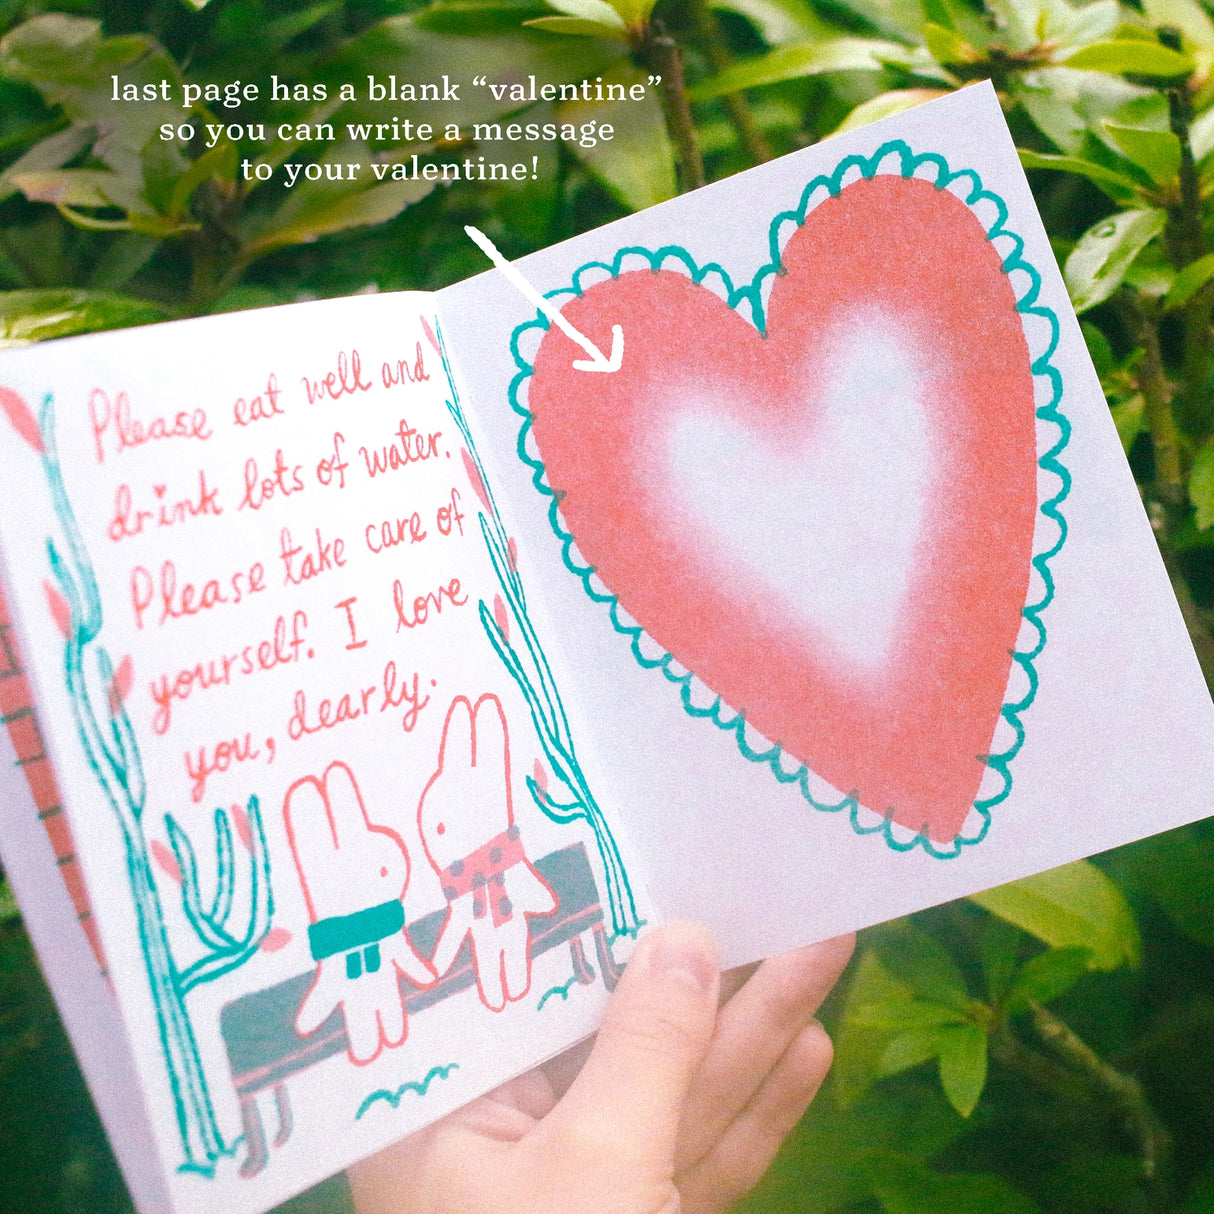 last page has a blank “valentine”
so you can write a message
to your valentine!
Please eat well and
drink lots of water.
Please take care of
yourself. I love
you, dearly.